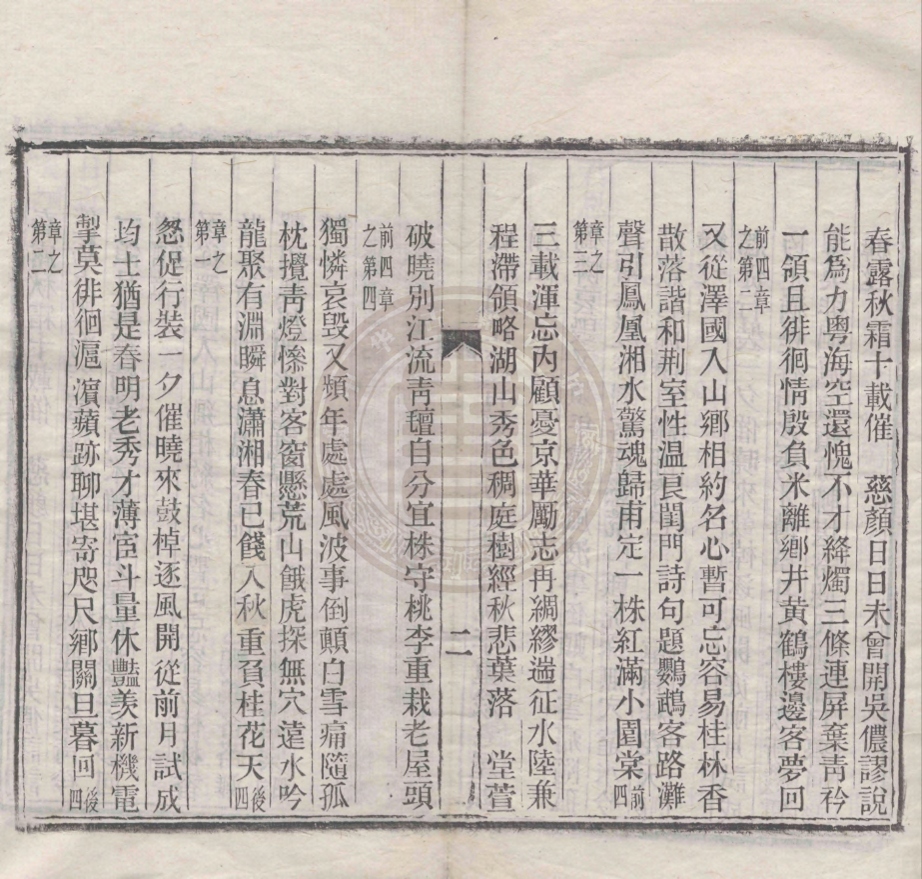 春露秋霜十載催　慈顏日日未曾開吳儂謬說
能爲力粵海空還愧不才絳燭三條連屏棄靑衿
一領且徘徊情殷負米離鄉井黃鶴樓邊客夢回
前四章之第二
又從澤國入山鄉相約名心暫可忘容易桂林香
散落諧和荆室性温良閨門詩句題鸚鵡客路灘
聲引鳳凰湘水驚魂歸甫定一株紅滿小園棠前四
章之第三
三載渾忘內顧憂京華勵志冉綢繆遄征水陸兼
程滯領略湖山秀色稠庭樹經秋悲葉落　堂萱
二
破曉別江流靑氊自分宜株守桃李重栽老屋頭
前四章之第四
獨憐哀毀又頻年處處風波事倒顛白雪痛隨孤
枕攪靑燈慘對客窗懸荒山餓虎探無穴遠水吟
龍聚有淵瞬息瀟湘春已餞入秋重負桂花天後四
章之第一
怱促行裝一夕催曉來鼓棹逐風開從前月試成
均士猶是春明老秀才薄宦斗量休豔羨新機電
掣莫徘徊滬濱蘋跡聊堪寄咫尺鄉關旦暮回後四
章之第二